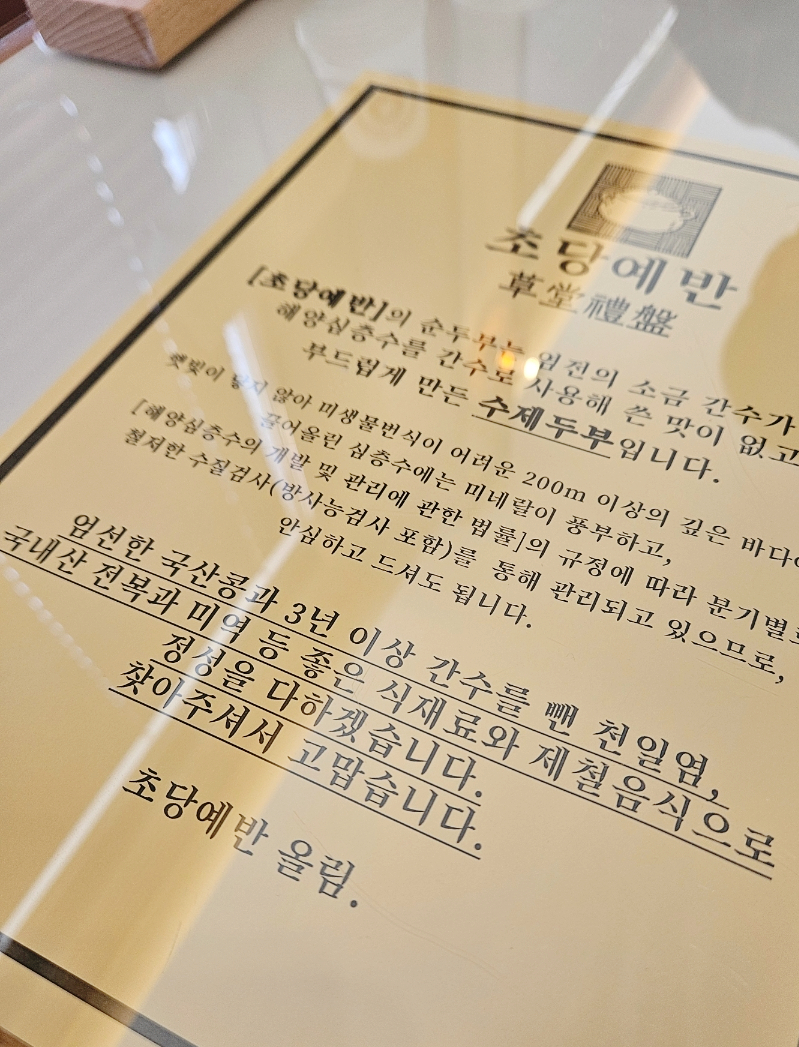 초당예반
草堂禮盤
[초당예반]의 순두부는 염전의 소금 간수가
해양심층수를 간수로 사용해 쓴 맛이 없고
부드럽게 만든 수제두부입니다.
햇빛이 닿지 않아 미생물번식이 어려운 200m 이상의 깊은 바다
끌어올린 심층수에는 미네랄이 풍부하고,
[해양심층수의 개발 및 관리에 관한 법률]의 규정에 따라 분기별로
철저한 수질검사(방사능검사 포함)를 통해 관리되고 있으므로,
안심하고 드셔도 됩니다.
엄선한 국산콩과 3년 이상 간수를 뺀 천일염,
국내산 전복과 미역 등 좋은 식재료와 제철음식으로
정성을 다하겠습니다.
찾아주셔서 고맙습니다.
초당예반 올림.